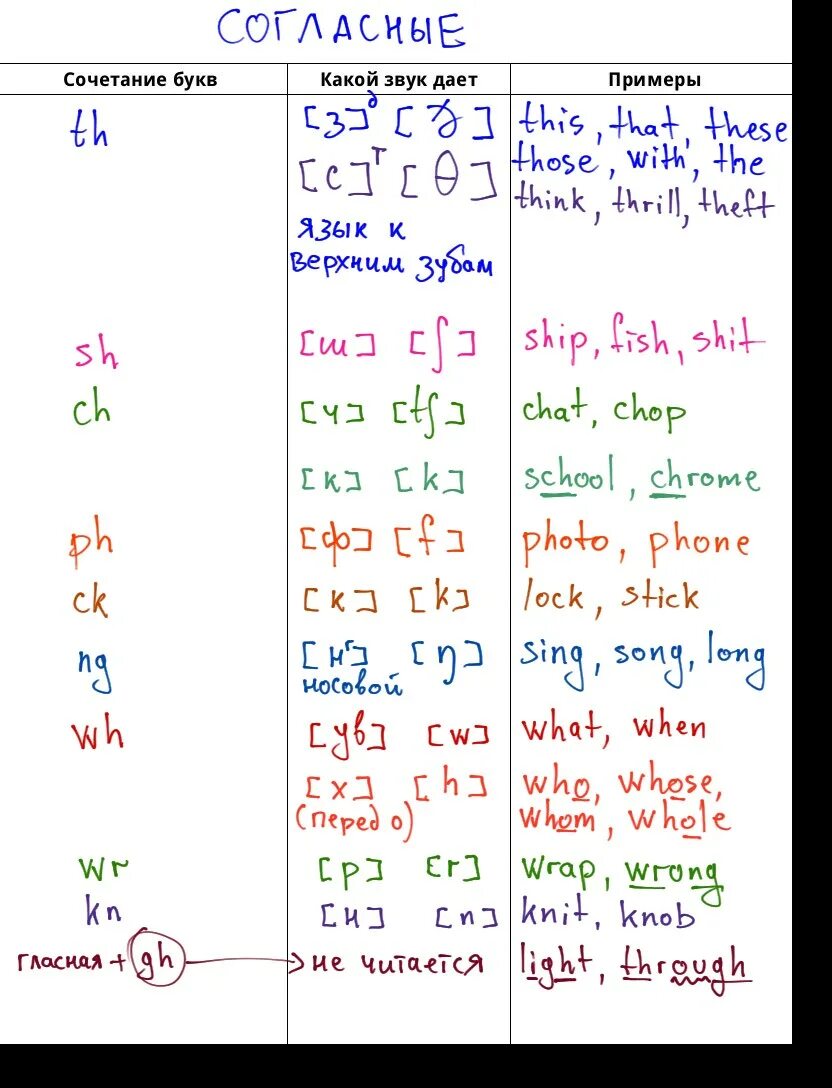 СОГЛАСНЫЕ
Сочетание букв Какой звук дает Примеры
th [з]д [ ð ] this, that, these
those, with, the
[с]т [ θ ] think, thrill, theft
язык к
верхним зубам
sh [ш] [ʃ] ship, fish, shit
ch [ч] [tʃ] chat, chop
[к] [k] school, chrome
ph [ф] [f] photo, phone
ck [к] [k] lock, stick
ng [нг] [ŋ] sing, song, long
носовой
wh [ув] [w] what, when
[х] [h] who, whose,
(перед о) whom, whole
wr [р] [r] wrap, wrong
kn [н] [n] knit, knob
гласная + gh → не читается light, through